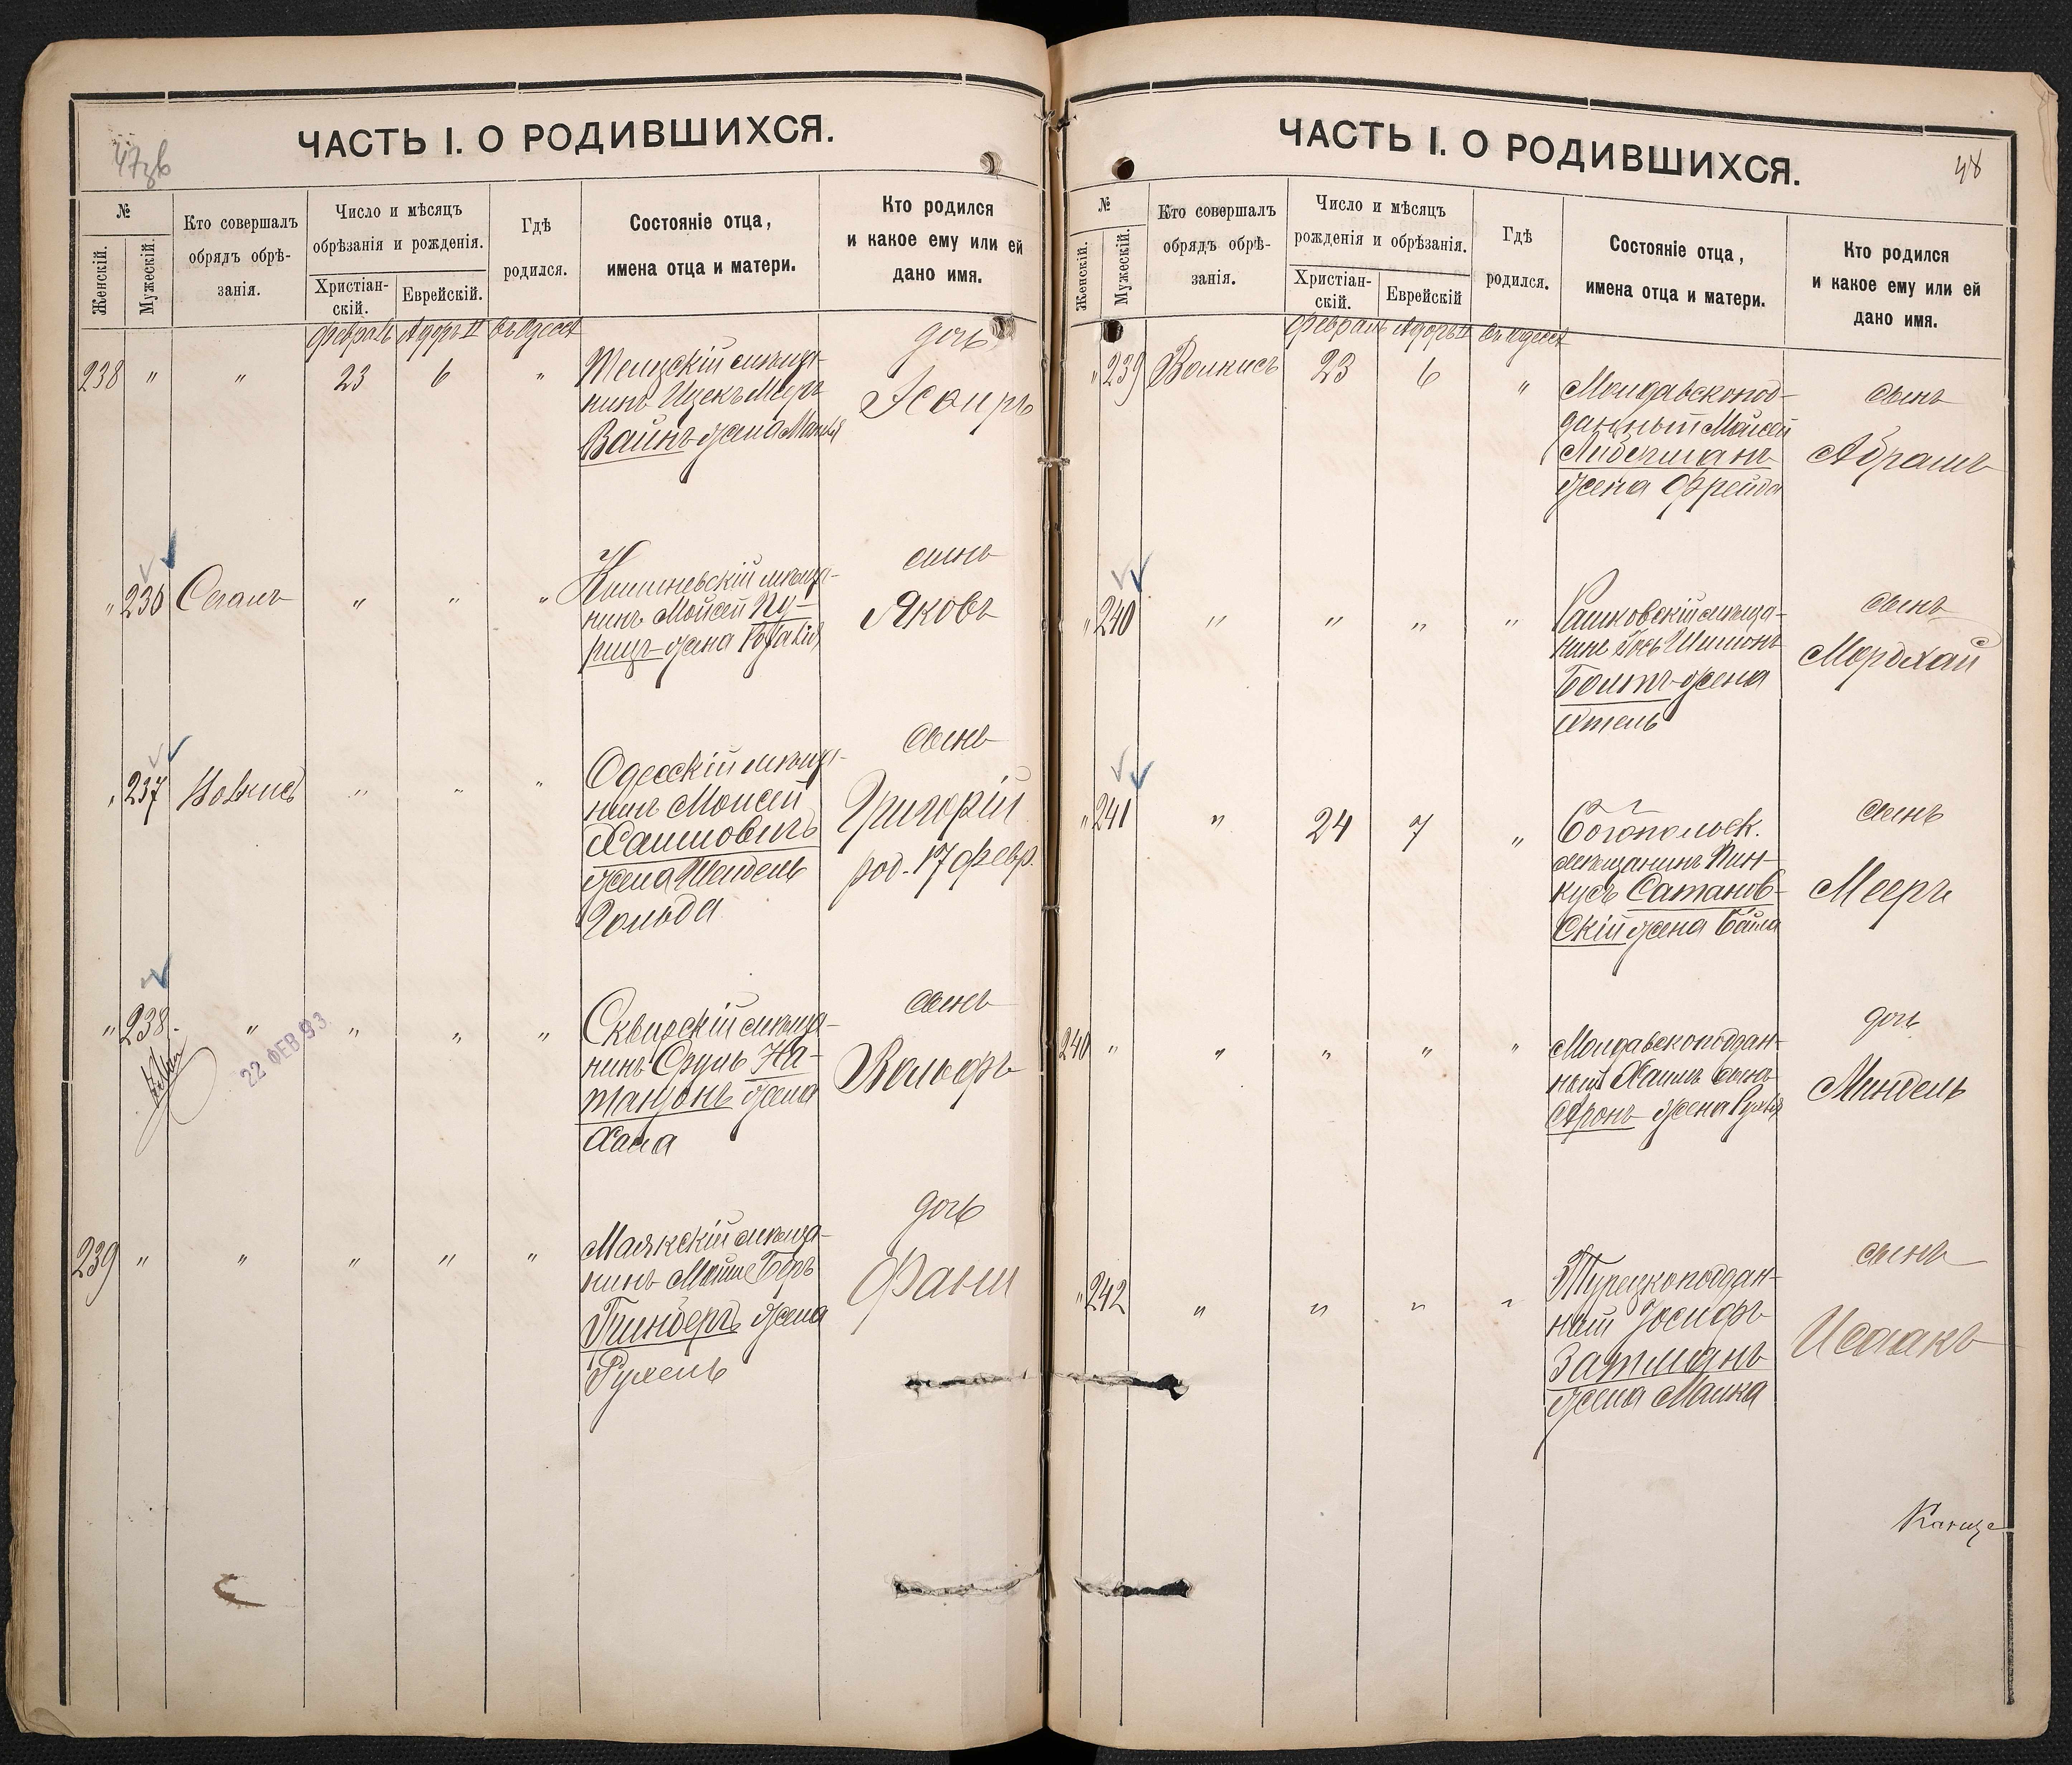 47 зв
ЧАСТЬ I. О РОДИВШИХСЯ.
№
Женскій.
Мужескій.
Кто совершалъ
обрядъ обрѣ-
занія.
Число и мѣсяцъ
обрѣзанія и рожденія.
Христіан-
скій.
Еврейскій.
Гдѣ
родился.
Состояніе отца,
имена отца и матери.
Кто родился
и какое ему или ей
дано имя.
февраль Адоръ II въ Одессѣ
238 " " 23 6 "
мѣща-
нинъ Ицекъ Мееръ
Вайнъ жена
дочь
" 236 " " "
Кишиневскій мѣща-
нинъ Мойсей Ку-
рицъ жена Розалія
сынъ
Яковъ
" 237 " " "
Одесскій мѣща-
нинъ Моисей
Хаимовичъ
жена Шейндель
Гольда
сынъ
Григорій
род. 17 февр.
" 238. " " " "
22 ФЕВ 93
Сквирскій мѣща-
нинъ Сруль На-
танзонъ жена
Хана
сынъ
Вольфъ
239 " " " " "
Маякскій мѣща-
нинъ Мойше Беръ
Гринбергъ жена
Рухель
дочь
Фани
48
ЧАСТЬ I. О РОДИВШИХСЯ.
№
Женскій.
Мужескій.
Кто совершалъ
обрядъ обрѣ-
занія.
Число и мѣсяцъ
рожденія и обрѣзанія.
Христіан-
скій.
Еврейскій
Гдѣ
родился.
Состояніе отца,
имена отца и матери.
Кто родился
и какое ему или ей
дано имя.
февраль Адоръ II въ Одессѣ
" 239 23 6 "
Молдавскопод-
данный Мойсей
Либерманъ
жена Фрейда
сынъ
Абрамъ
" 240 " " " "
Рашковскій мѣща-
нинъ Іось Шимонъ
жена
Этель
сынъ
Мордхай
" 241 " 24 7 "
Богопольск.
мѣщанинъ Пин-
кусъ Сатанов-
скій жена Бейла
сынъ
Мееръ
240 " " " " "
Молдавскоподдан-
ный Хаимъ
Аронъ жена
дочь
Миндель
" 242 " " " "
Турецкоподдан-
ный Іосифъ
Затманъ
жена Малка
сынъ
Исаакъ